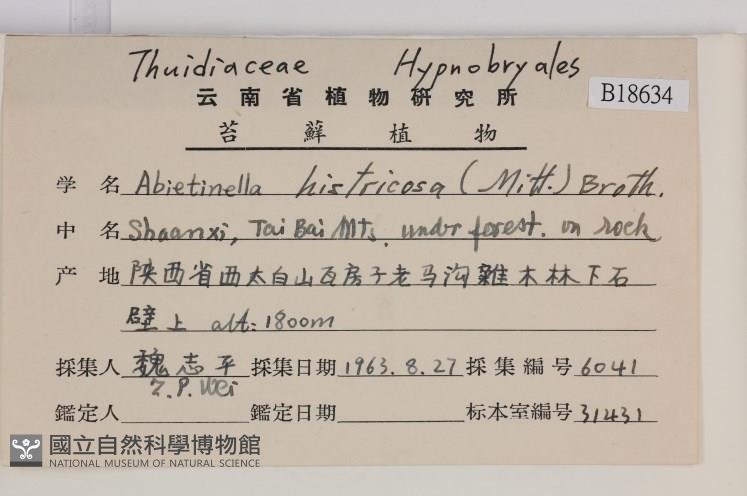 Thuidiaceae Hypnobryales
云南省植物研究所
B18634
苔蘚植物
学名 Abietinella histricosa (Mitt.) Broth.
中名 Shaanxi, Tai Bai Mts. under forest. on rock
产地 陕西省西太白山瓦房子老马沟雜木林下石
壁上 alt: 1800m
採集人 魏志平 採集日期 1963.8.27 採集編号 6041
Z.P. Wei
鑑定人 鑑定日期 标本室編号 31431
國立自然科學博物館
NATIONAL MUSEUM OF NATURAL SCIENCE